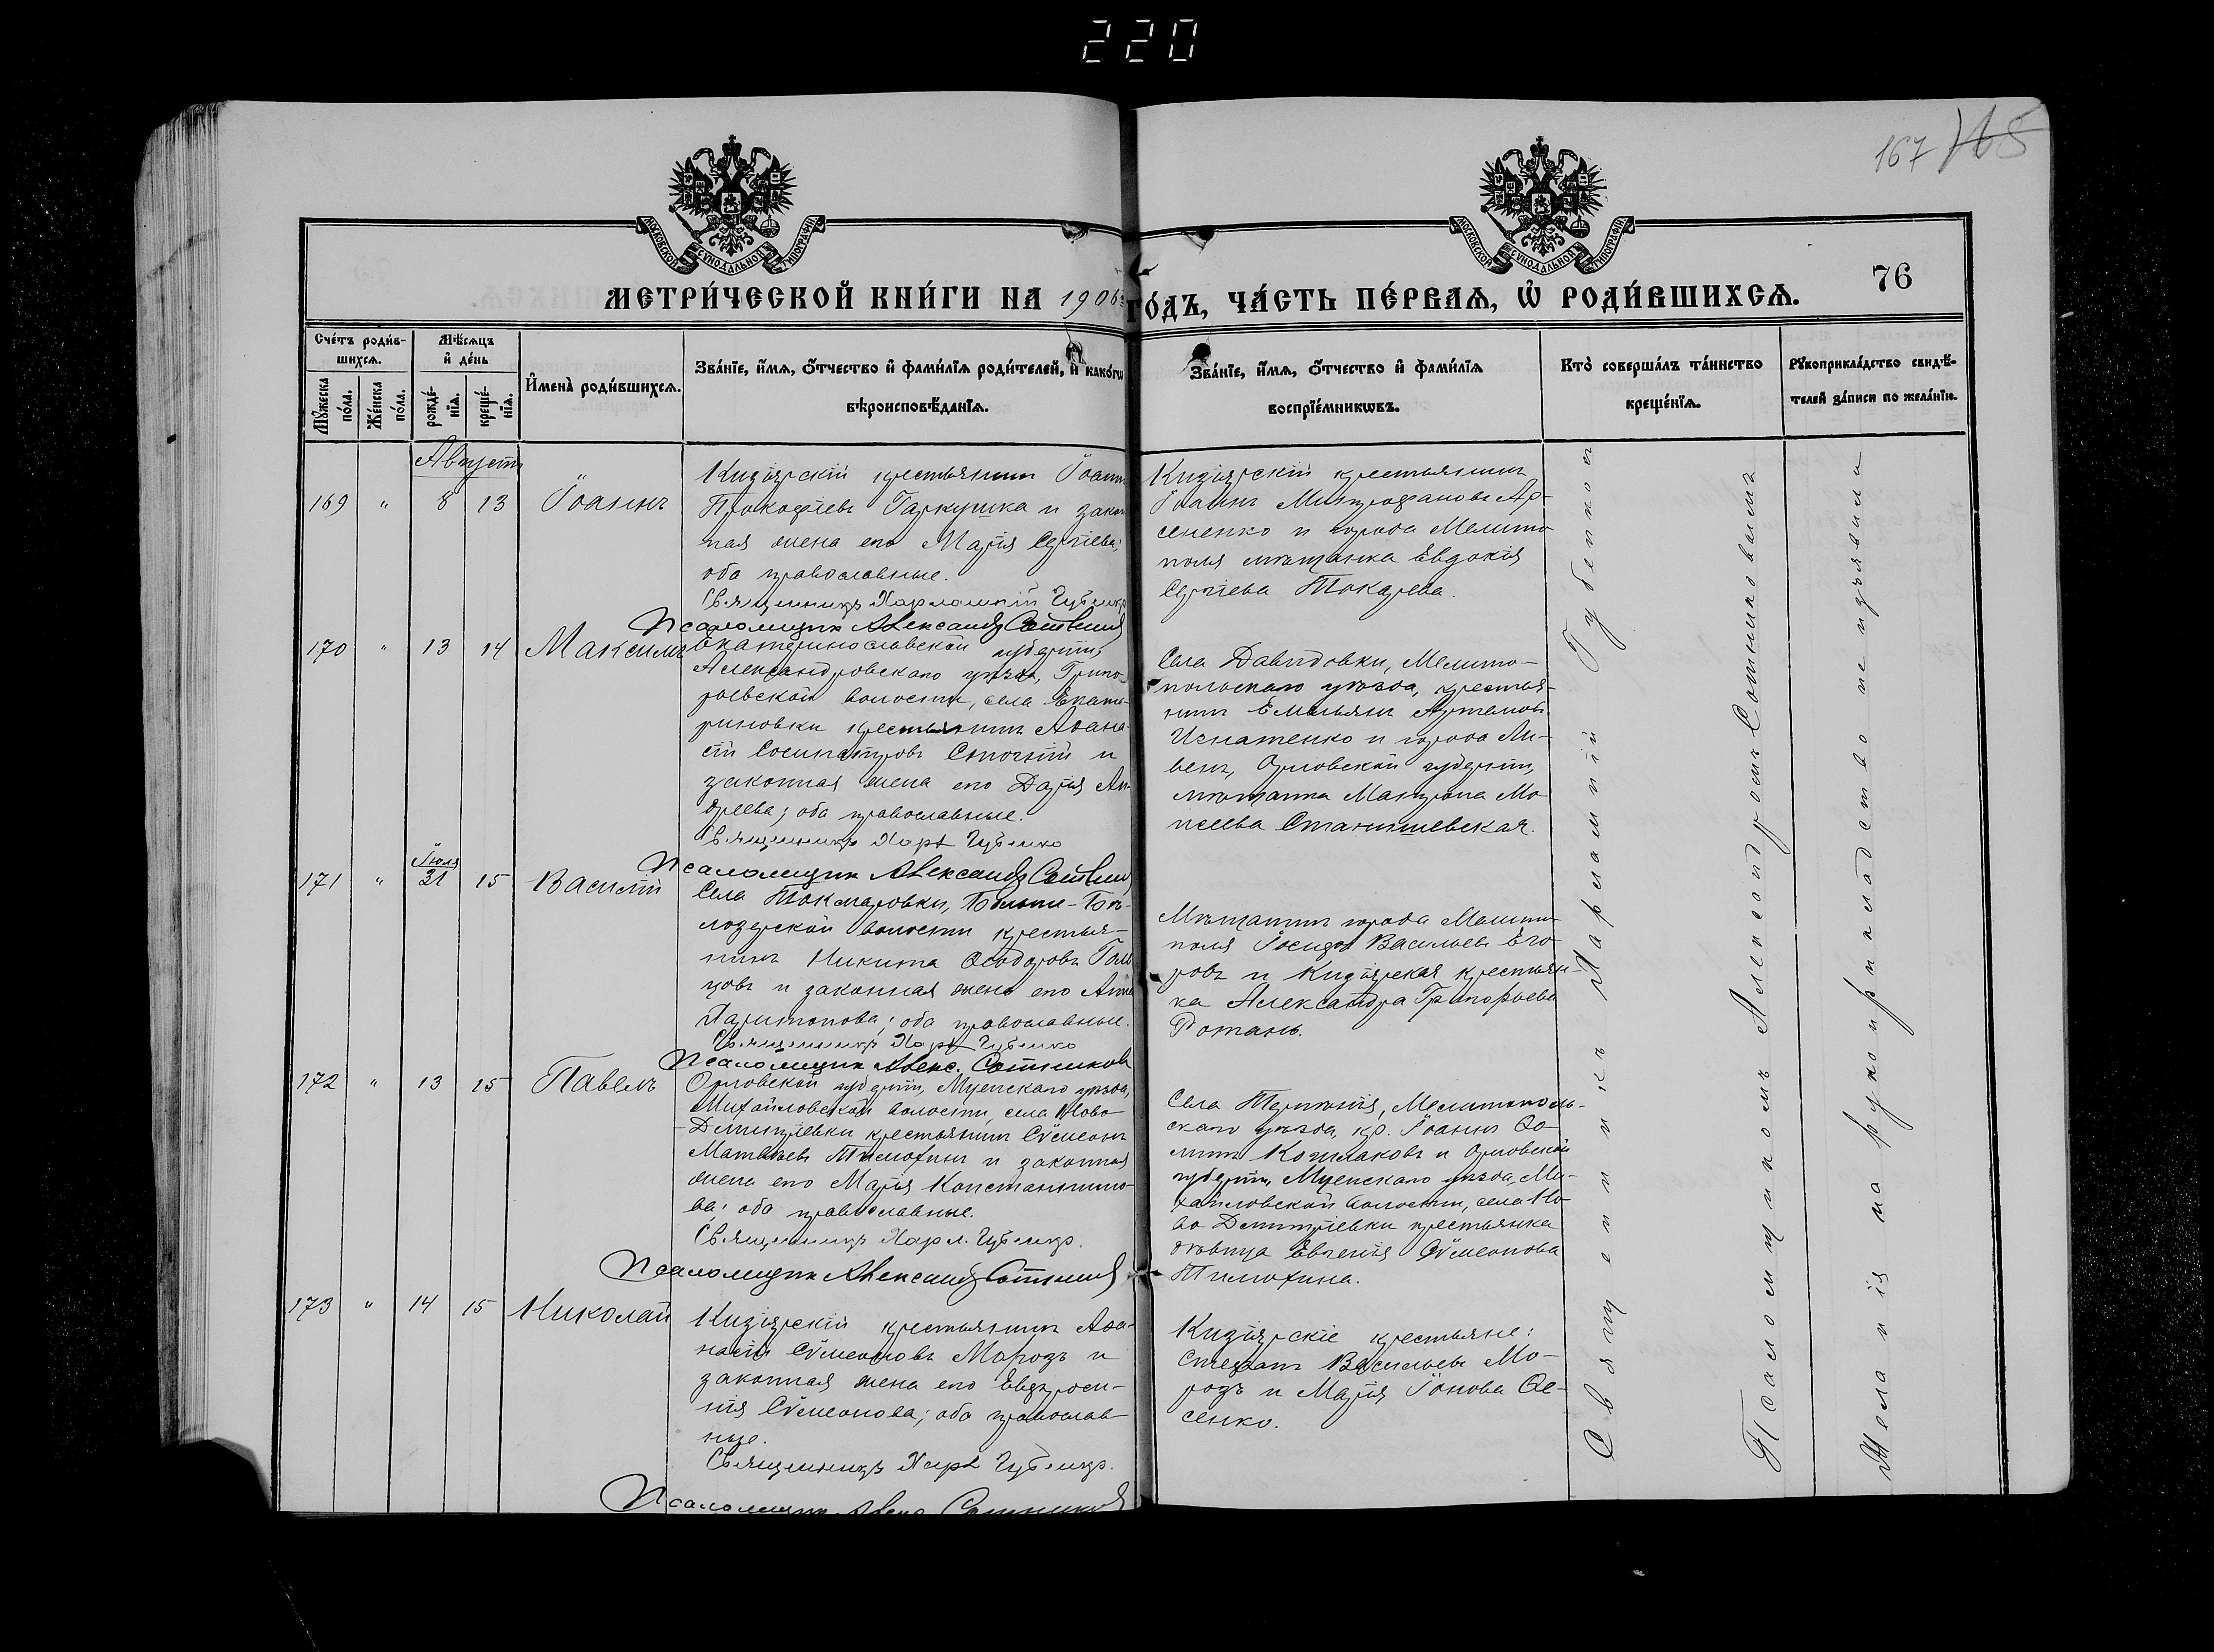 220
167 165
МОСКОВСКОЙ СѴНОДАЛЬНОЙ ТИПОГРАФІИ
МОСКОВСКОЙ СѴНОДАЛЬНОЙ ТИПОГРАФІИ
76
МЕТРИ́ЧЕСКОЙ КНИ́ГИ НА 1906 ГО́ДЪ, ЧА́СТЬ ПЕ́РВАЯ, Ѡ РОДИ́ВШИХСЯ.
Сче́тъ роди́в-
шихся.
Мѣ́сяцъ
и де́нь
Мꙋ́жеска
по́ла.
Же́нска
по́ла.
рожде́-
нїя.
креще́-
нїя.
И́мена̀ роди́вшихся.
Зва́нїе, и́мя, ѻ́тчество и фами́лїя роди́телей, и како́гѡ
вѣроисповѣ́данїя.
Зва́нїе, и́мя, ѻ́тчество и фами́лїя
воспрїе́мникѡвъ.
Кто̀ соверша́лъ та́инство
креще́нїя.
Рꙋкоприкла́дство свидѣ́-
телей за́писи по жела́нїю.
Августъ
169 " 8 13 Іоаннъ
Кизіярскій крестьянинъ Іоаннъ
Прокофіевъ Гаркушка и закон
ная жена его Марія Сергіева;
оба православные.
Священникъ Харлампій Губенко
Псаломщикъ Александръ Сотников
Кизіярскій крестьянинъ
Іоаннъ Митрофановъ Ар-
сененко и города Мелито
поля мѣщанка Евдокія
Сергіева Токарева.
170 " 13 14 Максимъ
Екатеринославской губерніи,
Александровскаго уѣзда, Григо-
рьевской волости, села Екате-
риновки крестьянинъ Аѳана-
сій Сосипатровъ Стогній и
законная жена его Дарія Ан-
дреева; оба православные.
Священникъ Харл Губенко
Псаломщикъ Александръ Сотников
Села Давидовки, Мелито-
польскаго уѣзда, крестья-
нинъ Емельянъ Артемовъ
Игнатенко и города Ли-
венъ, Орловской губерніи,
мѣщанка Матрона Мо-
исеева Станишевская.
Іюля
171 " 31 15 Василій
Села Токмаровки, Больше-Бѣ-
лозерской волости крестья-
нинъ Никита Ѳеодоровъ Голь
цовъ и законная жена его Анна
Харитонова; оба православные.
Священникъ Харл Губенко
Псаломщикъ Алекс. Сотников
Мѣщанинъ города Мелито-
поля Іосифъ Васильевъ Его-
ровъ и Кизіярская крестьян-
ка Александра Григорьева
Ротань.
172 " 13 15 Павелъ
Орловской губерніи, Мценскаго уѣзда,
Михайловской волости, села Ново-
Дмитріевки крестьянинъ Сѵмеонъ
Матвѣевъ Тимохинъ и законная
жена его Марія Константино-
ва; оба православные.
Священникъ Харл. Губенко.
Псаломщикъ Александръ Сотников
Села Терпѣнія, Мелитополь-
скаго уѣзда, кр. Іоаннъ Ѳо-
минъ Кошлаковъ и Орловской
губерніи, Мценскаго уѣзда, Ми-
хайловской волости, села Но-
во Дмитріевки крестьянка
дѣвица Евгенія Сѵмеонова
Тимохина.
173 " 14 15 Николай
Кизіярскій крестьянинъ Аѳа-
насій Сѵмеоновъ Морозъ и
законная жена его Евфроси-
нія Сѵмеонова; оба православ-
ные.
Священникъ Харл Губенко.
Псаломщикъ Алекс Сотников
Кизіярскіе крестьяне:
Стефанъ Васильевъ Мо-
розъ и Марія Іонова Ѳе-
сенко.
Священникъ Харлампій Губенко съ
Псаломщикомъ Александромъ Сотниковымъ
Желанія на рукоприкладство не изъявили